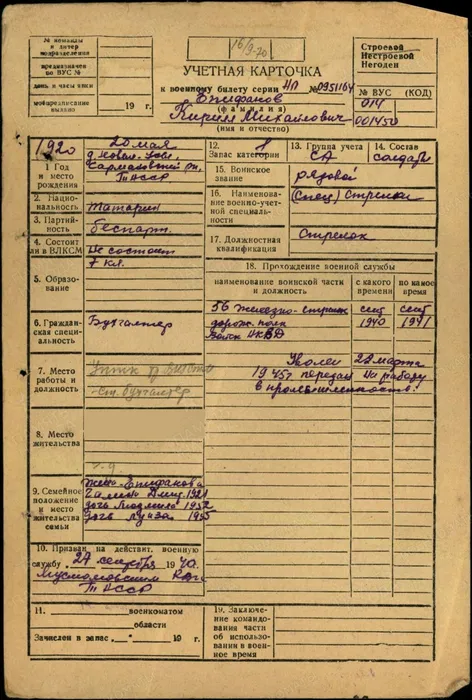 № команды
и литер
подразделения
предназначен
по ВУС №
день и часы явки
Мобпредписание
выявлено
19 г.
16/9-70
Строевой
Нестроевой
Негоден
УЧЕТНАЯ КАРТОЧКА
к военному билету серии НП № 0951164
Епифанов
(фамилия)
Кирилл Михайлович
(имя и отчество)
№ ВУС (КОД)
014
001450
1920
20 мая
ТАССР
1 Год
и место
рождения
2. Национальность
Татарин
3. Партийность
беспарт.
4. Состоит
ли в ВЛКСМ
Не состоит
5. Образование
7 кл.
6. Гражданская
специальность
Бухгалтер
7. Место
работы и
должность
ст. бухгалтер
8. Место
жительства
9. Семейное
положение
и место
жительства
семьи
жена-Епифанова
1921
дочь Людмила 1952
дочь Луиза 1955
10. Призван на действит. военную
службу 27 сентября 1940.
Муслюмовским РВК
ТАССР
11. военкоматом
области
Зачислен в запас „ “ 19 г.
12.
Запас категории
13. Группа учета
СА
14. Состав
солдаты
15. Воинское
звание
рядовой
16. Наименование
военно-учетной
специальности
(спец) Стрелки
17. Должностная
квалификация
Стрелок
18. Прохождение военной службы
наименование воинской части
и должность
с какого
времени
по какое
время
56
дорож. полк
войск НКВД
сент
1940
сент
1941
Уволен 22 марта
1945г передан на работу
в промышленность.
19. Заключение
командования
части об
использовании
в военное
время